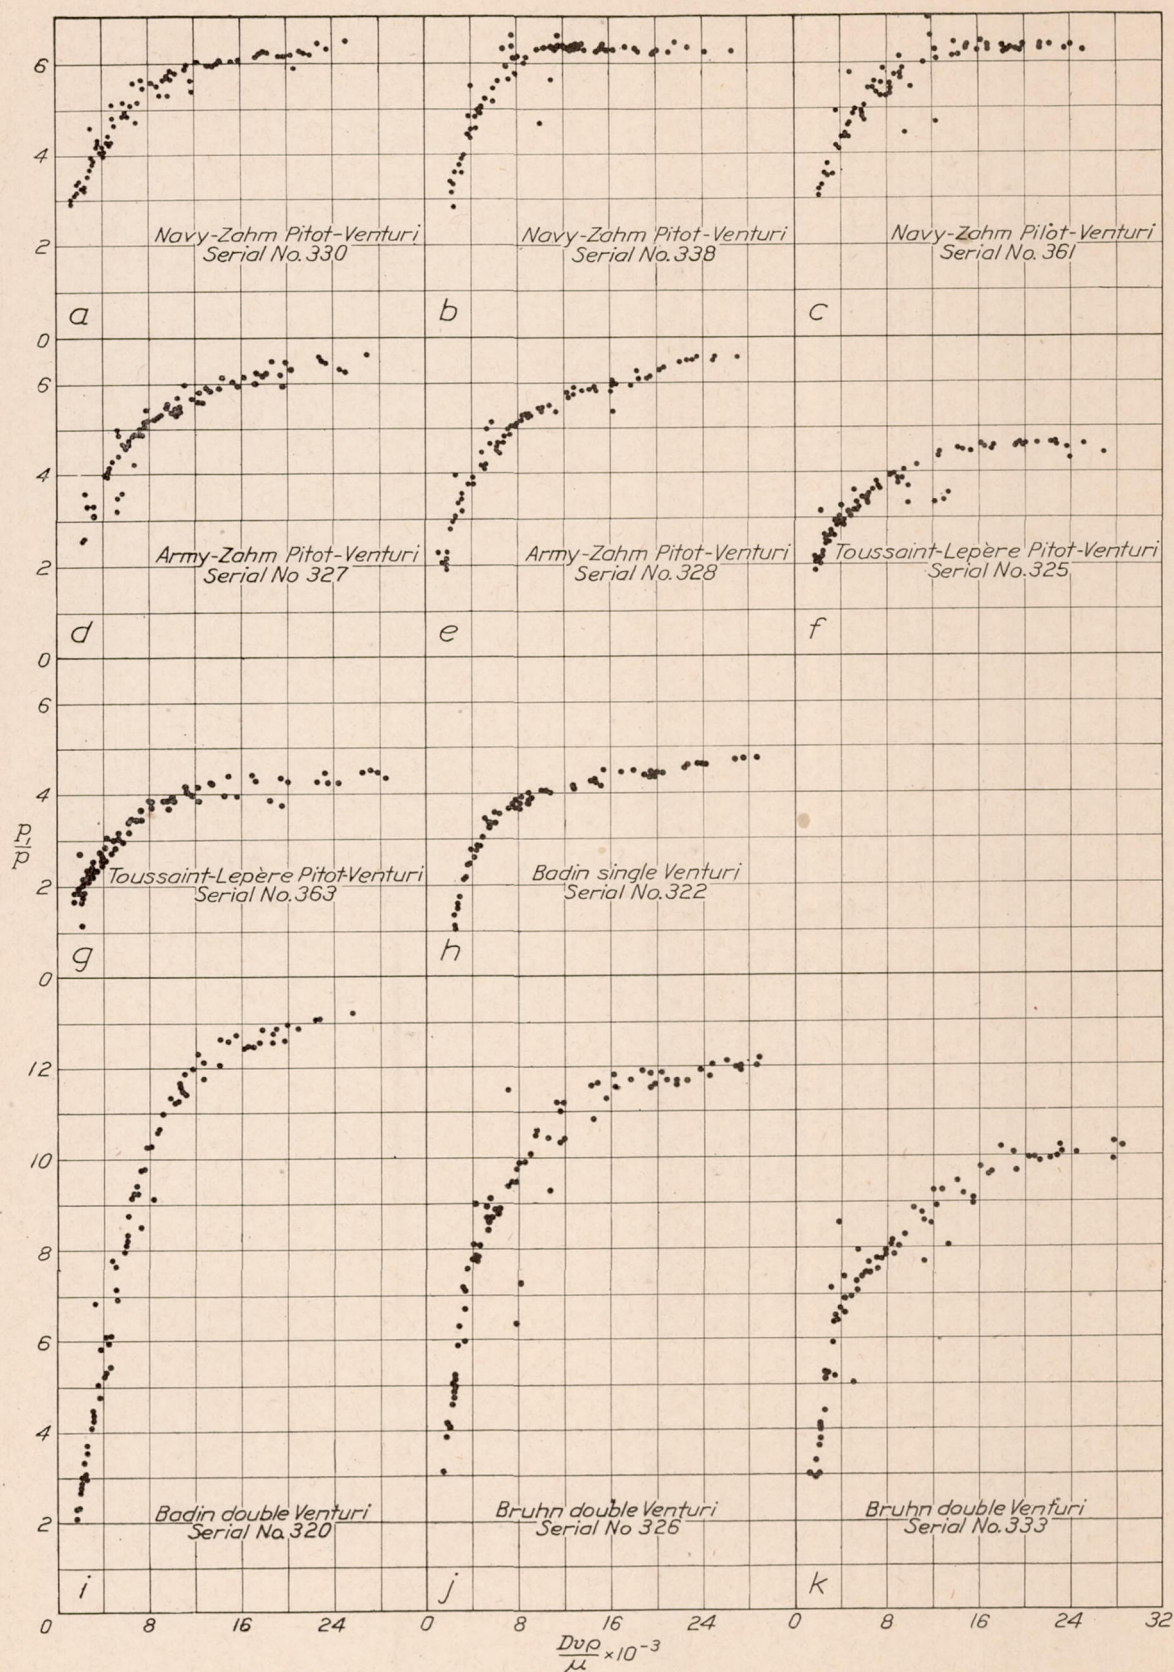 6
4
2
Navy-Zahm Pitot-Venturi
Serial No. 330
Navy-Zahm Pitot-Venturi
Serial No. 338
Navy-Zahm Pitot-Venturi
Serial No. 361
a
b
c
0
6
4
2
Army-Zahm Pitot-Venturi
Serial No 327
Army-Zahm Pitot-Venturi
Serial No. 328
Toussaint-Lepère Pitot-Venturi
Serial No. 325
d
e
f
0
6
4
2
P₁/p
Toussaint-Lepère Pitot-Venturi
Serial No. 363
Badin single Venturi
Serial No. 322
g
h
0
12
10
8
6
4
2
Badin double Venturi
Serial No. 320
Bruhn double Venturi
Serial No 326
Bruhn double Venturi
Serial No. 333
i
j
k
0 8 16 24 0 8 16 24 0 8 16 24 32
Dvρ/μ ×10⁻³